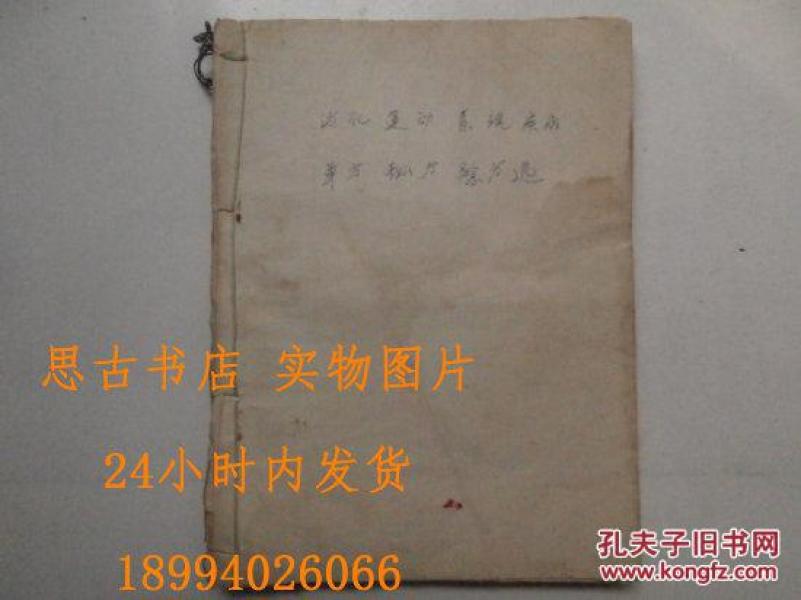 消化 运动 系统 疾病
单方 秘方 验方选
思古书店 实物图片
24小时内发货
18994026066
孔夫子旧书网
www.kongfz.com